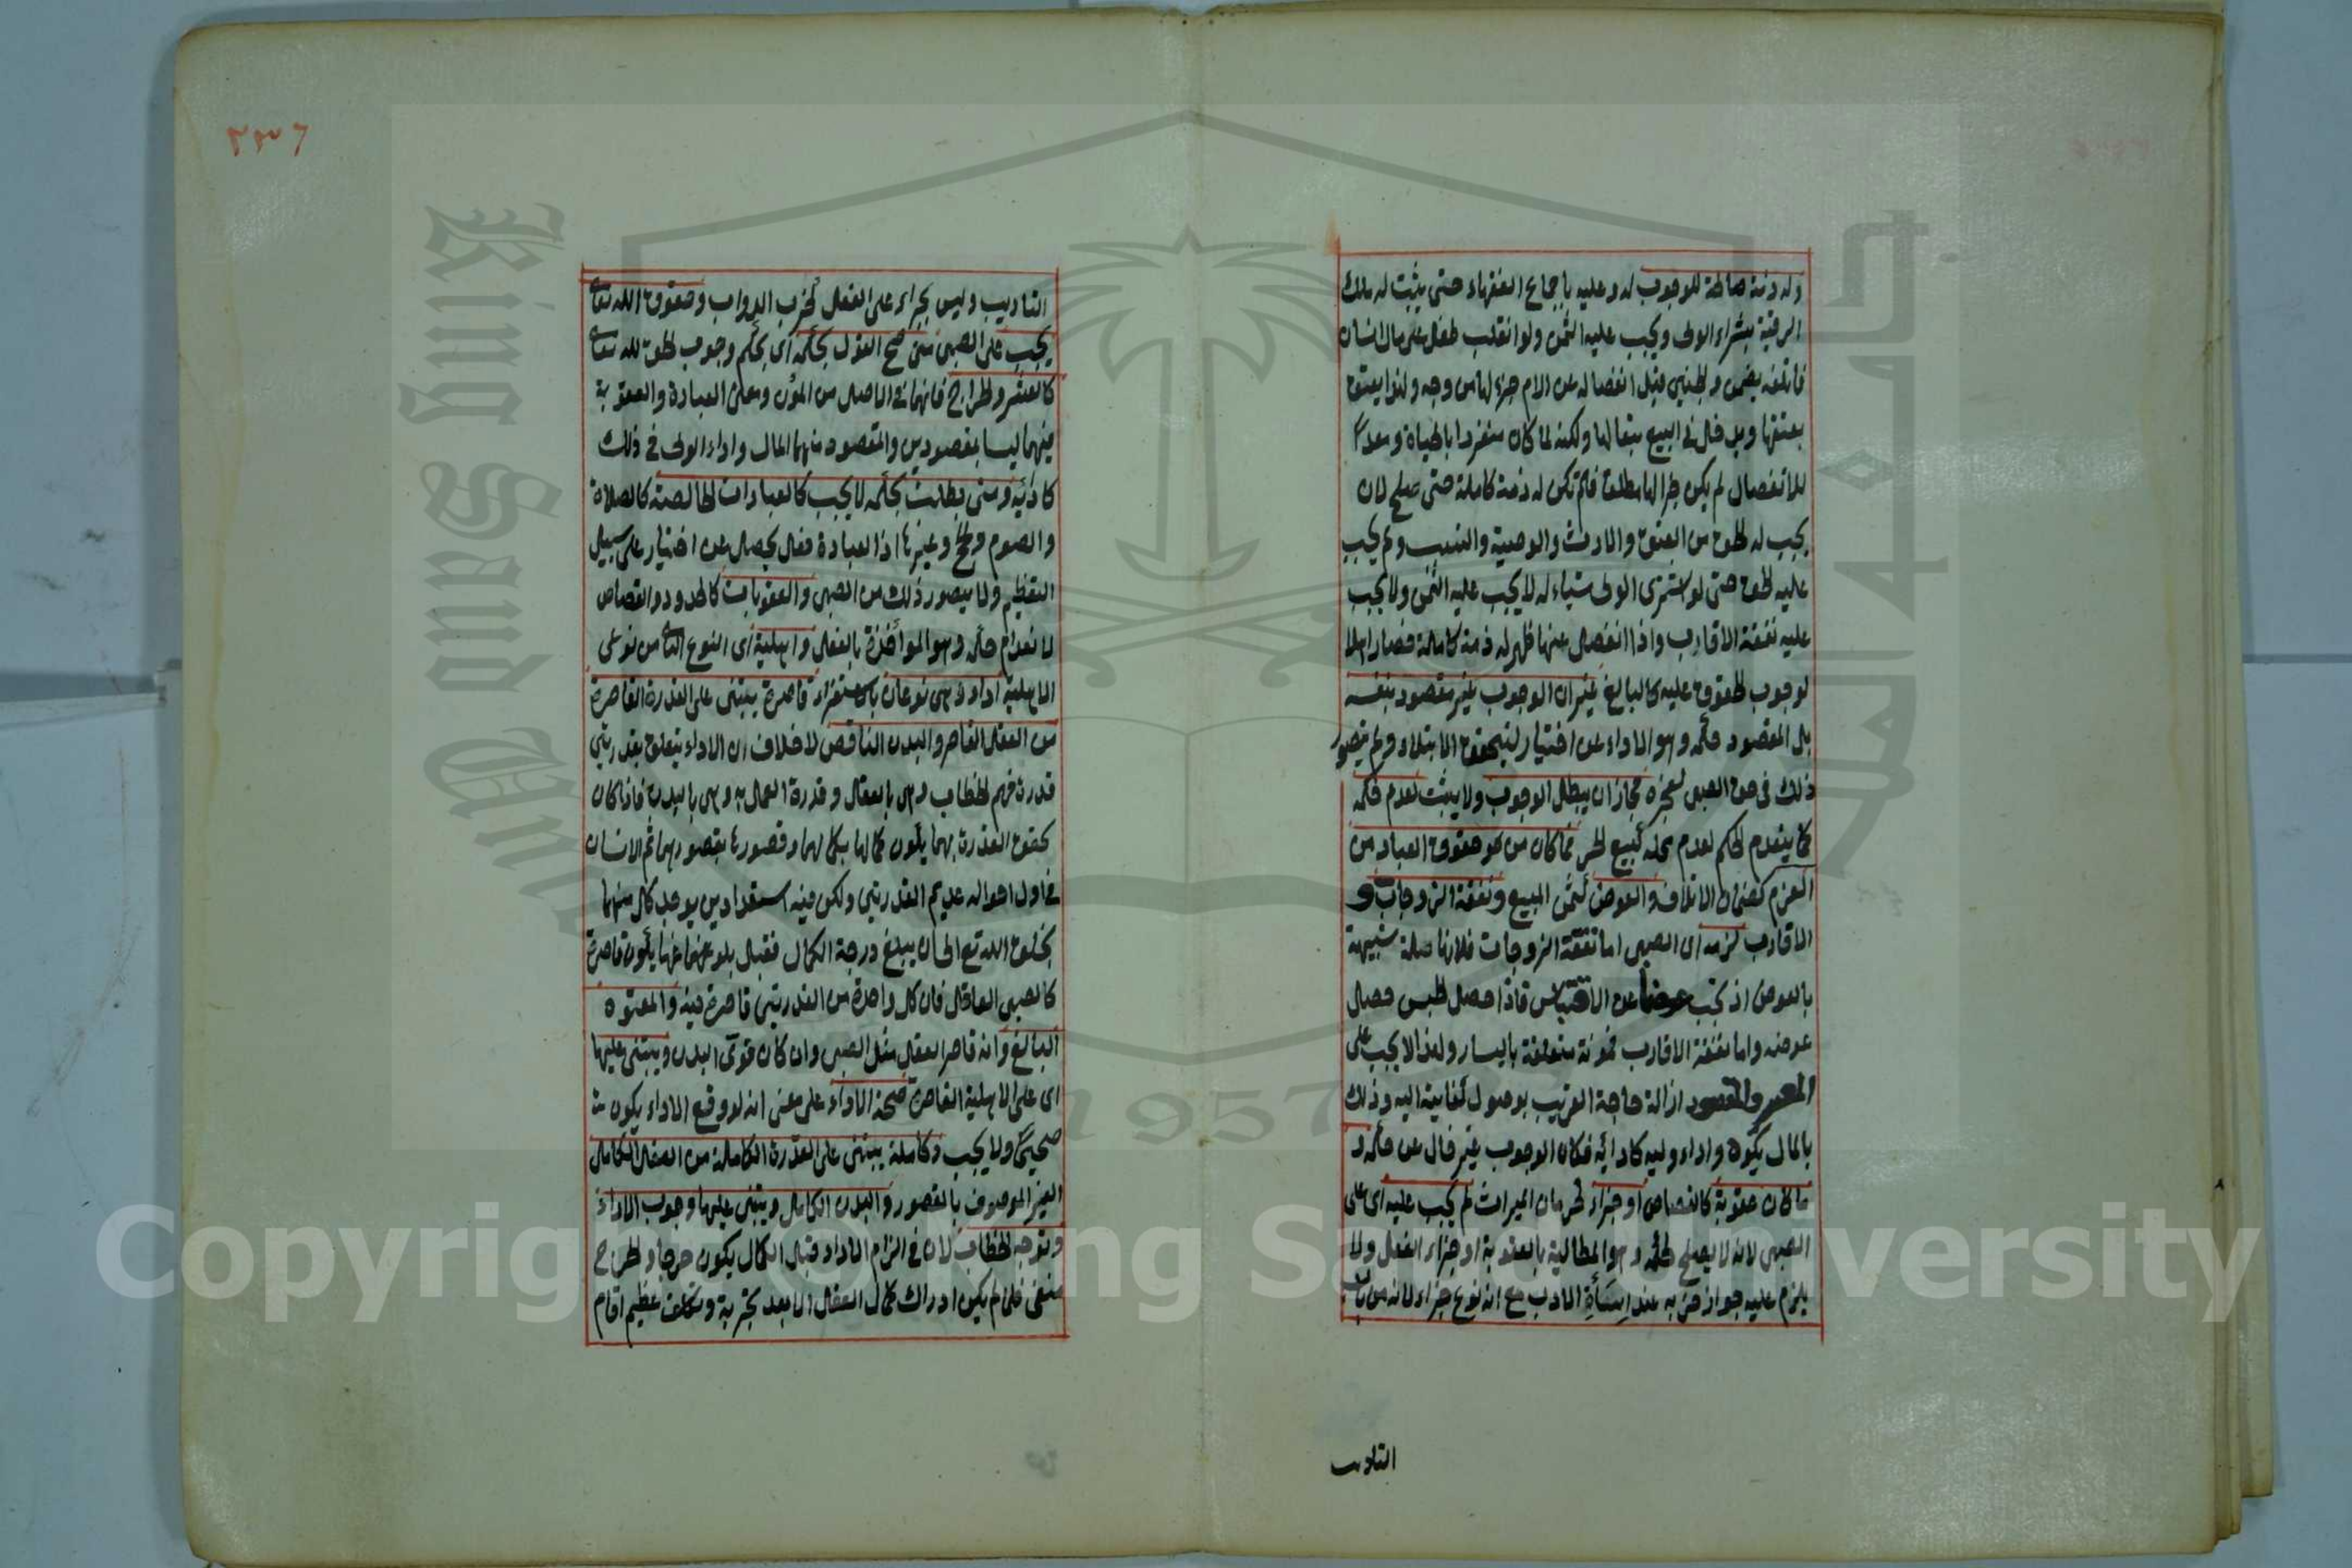 وله ذمة صالحة للوجوب له وعليه باجماع الفقهاء حتى يثبت له ملك
الرقبة بشراء الولى ويجب عليه الثمن ولو انقلب طفل على مال انسان
فاتلفه يضمن والجنين قبل انفصاله عن الام جزء لها من وجه ولهذا يعتق
بعتقها ويدخل فى البيع تبعا لها ولكنه لما كان منفردا بالحياة ومعدا
للانفصال لم يكن جزا لها مطلقا فلم تكن له ذمة كاملة حتى صلح لان
يجب له الحق من العتق والارث والوصية والنسب ولم يجب
عليه الحق حتى لو اشترى الولى شياء له لا يجب عليه الثمن ولا يجب
عليه نفقة الاقارب واذا انفصل عنها ظهر له ذمة كاملة فصار اهلا
لوجوب الحقوق عليه كالبالغ غير ان الوجوب غير مقصود بنفسه
بل المقصود حكمه وهو الاداء عن اختيار ليتحقق الابتلاء ولم يتصور
ذلك فى حق الصبى لعجزه فجاز ان يبطل الوجوب ولا يثبت لعدم حكمه
كما ينعدم الحكم لعدم محله كبيع الحر فما كان من حقوق العباد من
الغرم كضمان الاتلاف والعوض كثمن المبيع ونفقة الزوجات و
الاقارب لزمه اى الصبى اما نفقة الزوجات فلانها صلة شبيهة
بالعوض اذ تجب عوضا عن الاحتباس فاذا حصل الحبس حصل
عوضه واما نفقة الاقارب فمونة متعلقة باليسار ولهذا لا يجب على
المعسر والمقصود ازالة حاجة القريب بوصول كفايته اليه وذلك
بالمال يكون واداء وليه كادائه فكان الوجوب غير خال عن حكمه و
ما كان عقوبة كالقصاص او جزاء كحرمان الميراث لم يجب عليه اى على
الصبى لانه لا يصلح لحكمه وهو المطالبة بالعقوبة او جزاء الفعل ولا
يلزم عليه جواز ضربه عند اساءة الادب مع انه نوع جزاء لانه من باب
التاديب
٢٣٦
التاديب وليس بجزاء على الفعل كضرب الدواب وحقوق الله تعالى
يجب على الصبى متى صح القول بحكمه اى بحكم وجوب الحق لله تعالى
كالعشر والخراج فانهما فى الاصل من المؤن ومعنى العبادة والعقوبة
فيهما ليسا بمقصودين والمقصود منهما المال واداء الولى فى ذلك
كادائه ومتى بطلت بحكمه لا يجب كالعبادات الخالصة كالصلاة
والصوم والحج وغيرها اذ العبادة فعل يحصل عن اختيار على سبيل
التعظيم ولا يتصور ذلك من الصبى والعقوبات كالحدود والقصاص
لانعدام حكمه وهو المواخذة بالفعل واهلية اى النوع الثانى من نوعى
الاهلية اداء وهى نوعان بالاستقراء قاصرة يبتنى على القدرة القاصرة
من العقل القاصر والبدن الناقص لا خلاف ان الاداء يتعلق بقدرتين
قدرة فهم الخطاب وهى بالعقل وقدرة العمل به وهى بالبدن فاذا كان
تحقق القدرة بهما يكون كمالها بكمالهما وقصورها بقصورهما ثم الانسان
فى اول احواله عديم القدرتين ولكن فيه استعداد بين يوجد كل منهما
بخلق الله تع الى ان يبلغ درجة الكمال فقبل بلوغهما فيها يكون قاصرة
كالصبى العاقل فان كل واحدة من القدرتين قاصرة فيه والمعتوه
البالغ وانه قاصر العقل مثل الصبى وان كان قوى البدن ويبتنى عليها
اى على الاهلية القاصرة صحة الاداء على معنى انه لو وقع الاداء يكون
صحيحا ولا يجب وكاملة يبتنى على القدرة الكاملة من العقل الكامل
الغير الموصوف بالقصور والبدن الكامل ويبتنى عليها وجوب الاداء
وتوجه الخطاب لان فى الزام الاداء قبل الكمال يكون حرجا والحرج
منفى فلما لم يكن ادراك كمال العقل الا بعد تجربة وتكلف عظيم اقام